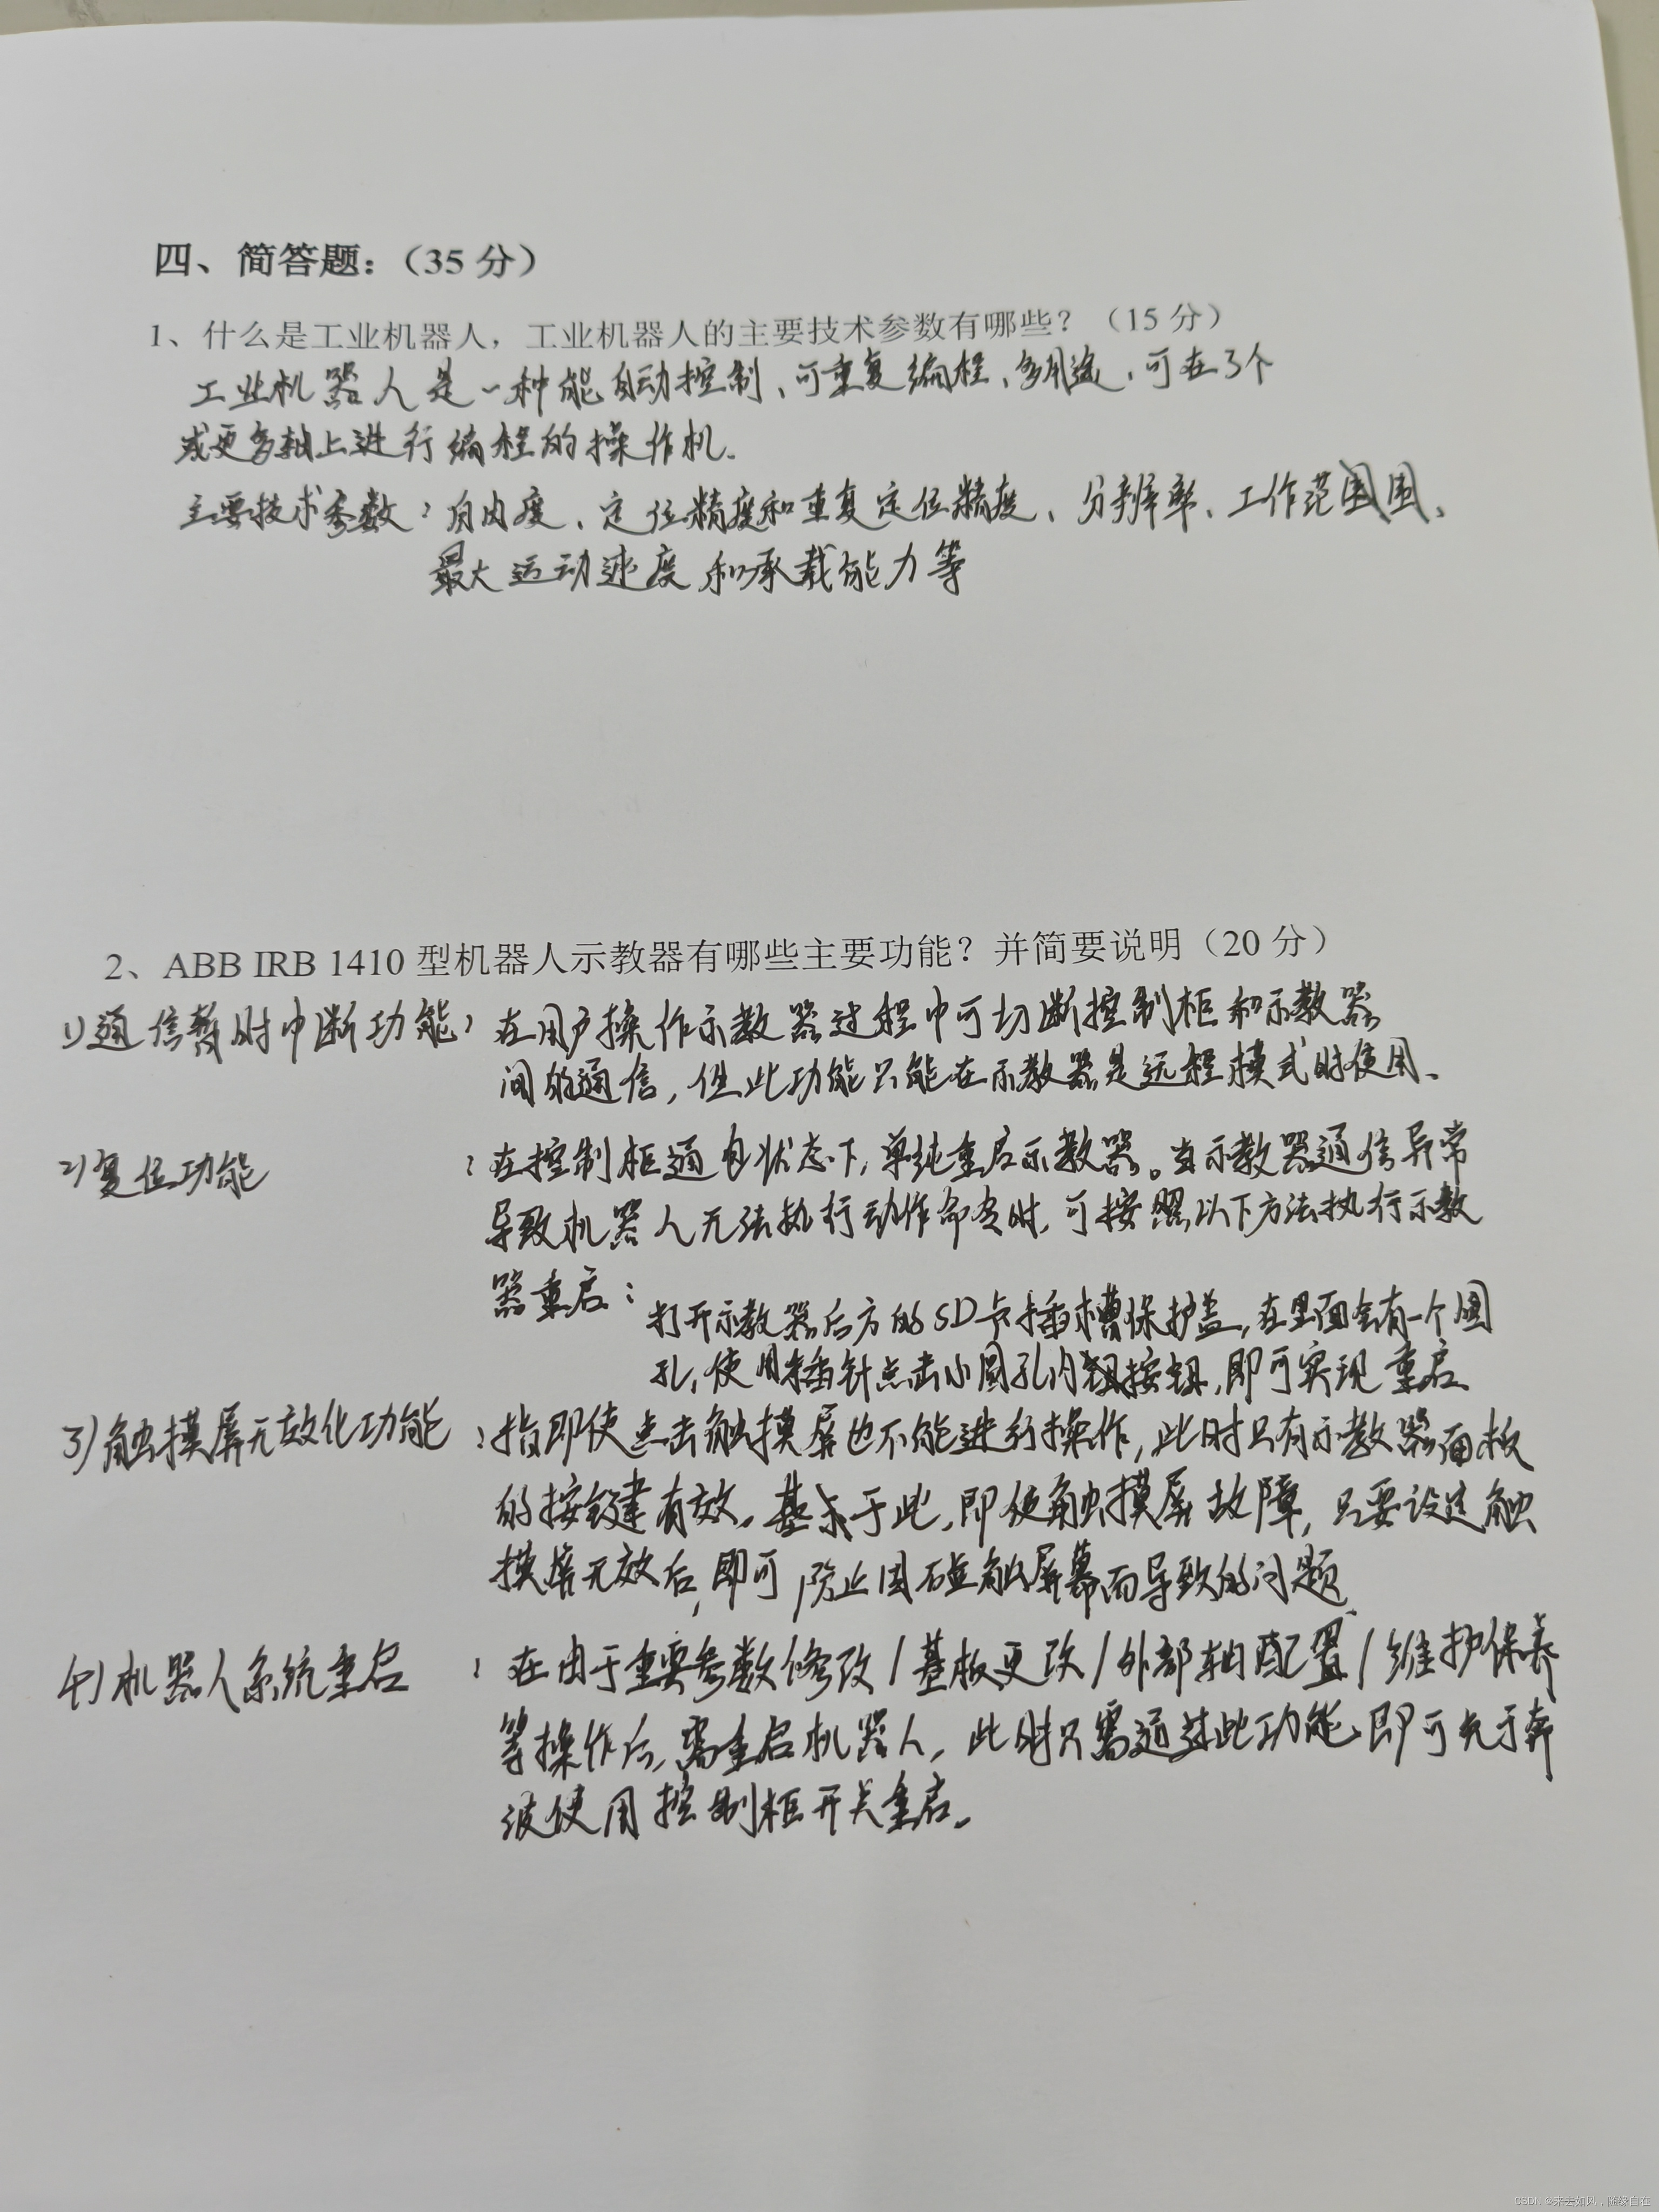 四、简答题：（35 分）
1、什么是工业机器人，工业机器人的主要技术参数有哪些？（15 分）
工业机器人是一种能自动控制、可重复编程、多用途、可在3个
或更多轴上进行编程的操作机.
主要技术参数：自由度、定位精度和重复定位精度、分辨率、工作范围、
最大运动速度和承载能力等
2、ABB IRB 1410 型机器人示教器有哪些主要功能？并简要说明（20 分）
1)通信暂时中断功能：在用户操作示教器过程中可切断控制柜和示教器
间的通信，但此功能只能在示教器是远程模式时使用、
2)复位功能：在控制柜通电状态下，单纯重启示教器。当示教器通信异常
导致机器人无法执行动作命令时，可按照以下方法执行示教
器重启：打开示教器后方的SD卡插槽保护盖，在里面会有一个圆
孔，使用插针点击小圆孔内按钮，即可实现重启
3)触摸屏无效化功能：指即使点击触摸屏也不能进行操作，此时只有示教器面板
的按键有效。基于此，即使触摸屏故障，只要设定触
摸屏无效后，即可防止因碰触屏幕而导致的问题
4)机器人系统重启：在由于重要参数修改/基板更改/外部轴配置/维护保养
等操作后，需重启机器人，此时只需通过此功能、即可免于奔
波使用控制柜开关重启。
CSDN @来去如风，随缘自在